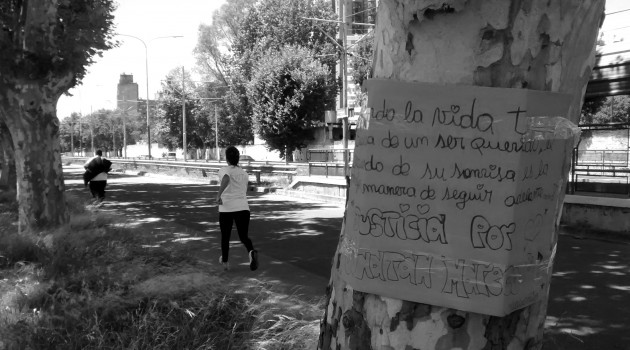 do la vida t
a de un ser querido,
do de su sonrisa es lo
manera de seguir adelan
USTICIA POR